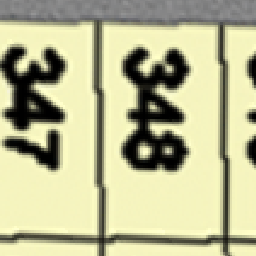 347
348